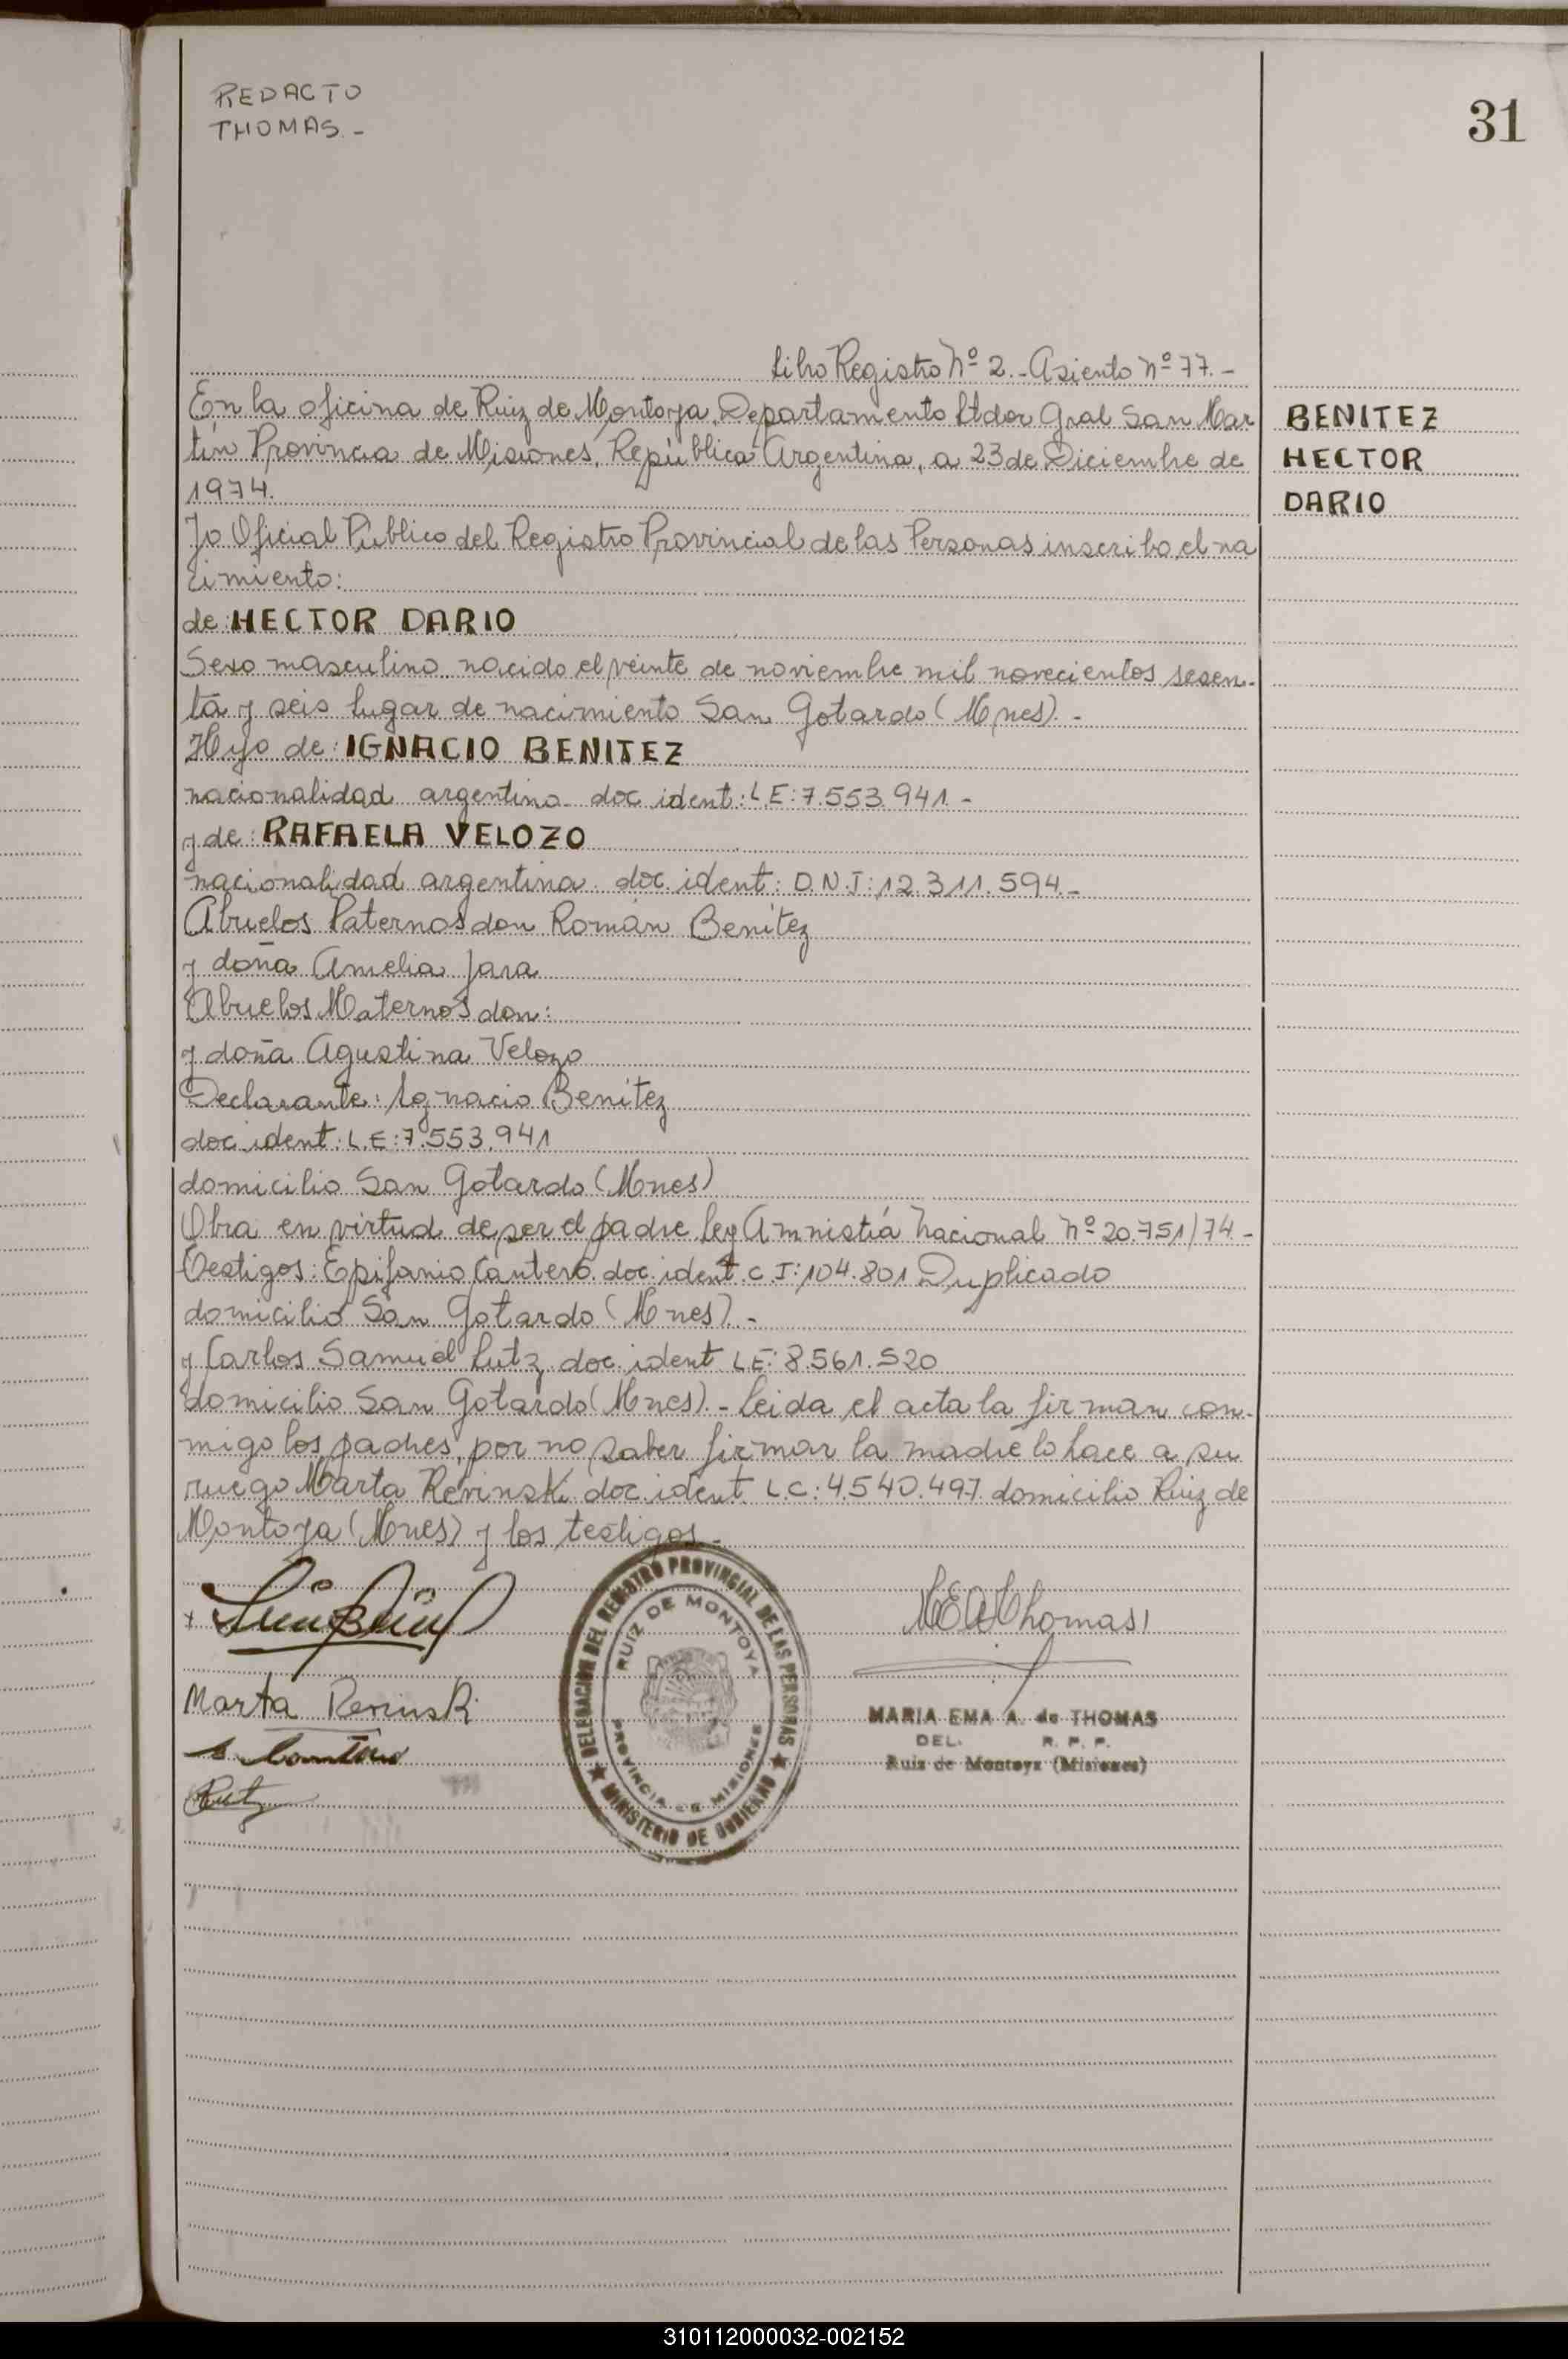 REDACTO
THOMAS.-
31
Libro Registro Nº 2.- Asiento Nº 77.-
En la oficina de Ruiz de Montoya, Departamento Ltdor Gral San Mar
tín Provincia de Misiones, República Argentina, a 23 de Diciembre de
1974.
BENITEZ
HECTOR
DARIO
Yo Oficial Público del Registro Provincial de las Personas inscribo el na
cimiento:
de: HECTOR DARIO
Sexo masculino nacido el veinte de noviembre mil novecientos sesen-
ta y seis lugar de nacimiento San Gotardo (Mnes).-
Hijo de: IGNACIO BENITEZ
nacionalidad argentina doc ident: L.E: 7.553.941.-
y de: RAFAELA VELOZO
nacionalidad argentina. doc. ident: D.N.I: 12.311.594.-
Abuelos Paternos don Román Benítez
y doña Amelia Jara
Abuelos Maternos don:
y doña Agustina Velozo
Declarante: Ignacio Benítez
doc ident: L.E: 7.553.941
domicilio San Gotardo (Mnes)
Obra en virtud de ser el padre Ley Amnistía Nacional Nº 20.751/74.-
Testigos: Epifanio Cantero doc. ident. C.I: 104.801 Duplicado
domicilio San Gotardo (Mnes).-
y Carlos Samuel Lutz doc. ident L.E: 8.561.520
domicilio San Gotardo (Mnes).- Leida el acta la firman con-
migo los padres, por no saber firmar la madre lo hace a su
ruego Marta Revinski doc ident L.C: 4.540.497 domicilio Ruiz de
Montoya (Mnes) y los testigos.-
DELEGACION DEL REGISTRO PROVINCIAL DE LAS PERSONAS
RUIZ DE MONTOYA
PROVINCIA DE MISIONES
MINISTERIO DE GOBIERNO
MEA Thomas
Marta Revinski
MARIA EMA A. de THOMAS
DEL. R. P. P.
Ruiz de Montoya (Misiones)
310112000032-002152